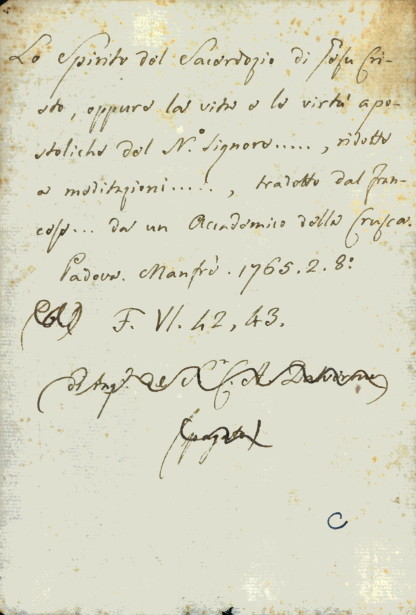 Lo Spirito del Sacerdozio di Jesu Cri-
sto, oppure la vita e le virtù apo-
stoliche del N.º Signore....., ridotte
a meditazioni....., tradotto dal fran-
cese... da un Accademico della Crusca.
Padova. Manfrè. 1765. 2. 8º
F. VI. 42, 43.
C